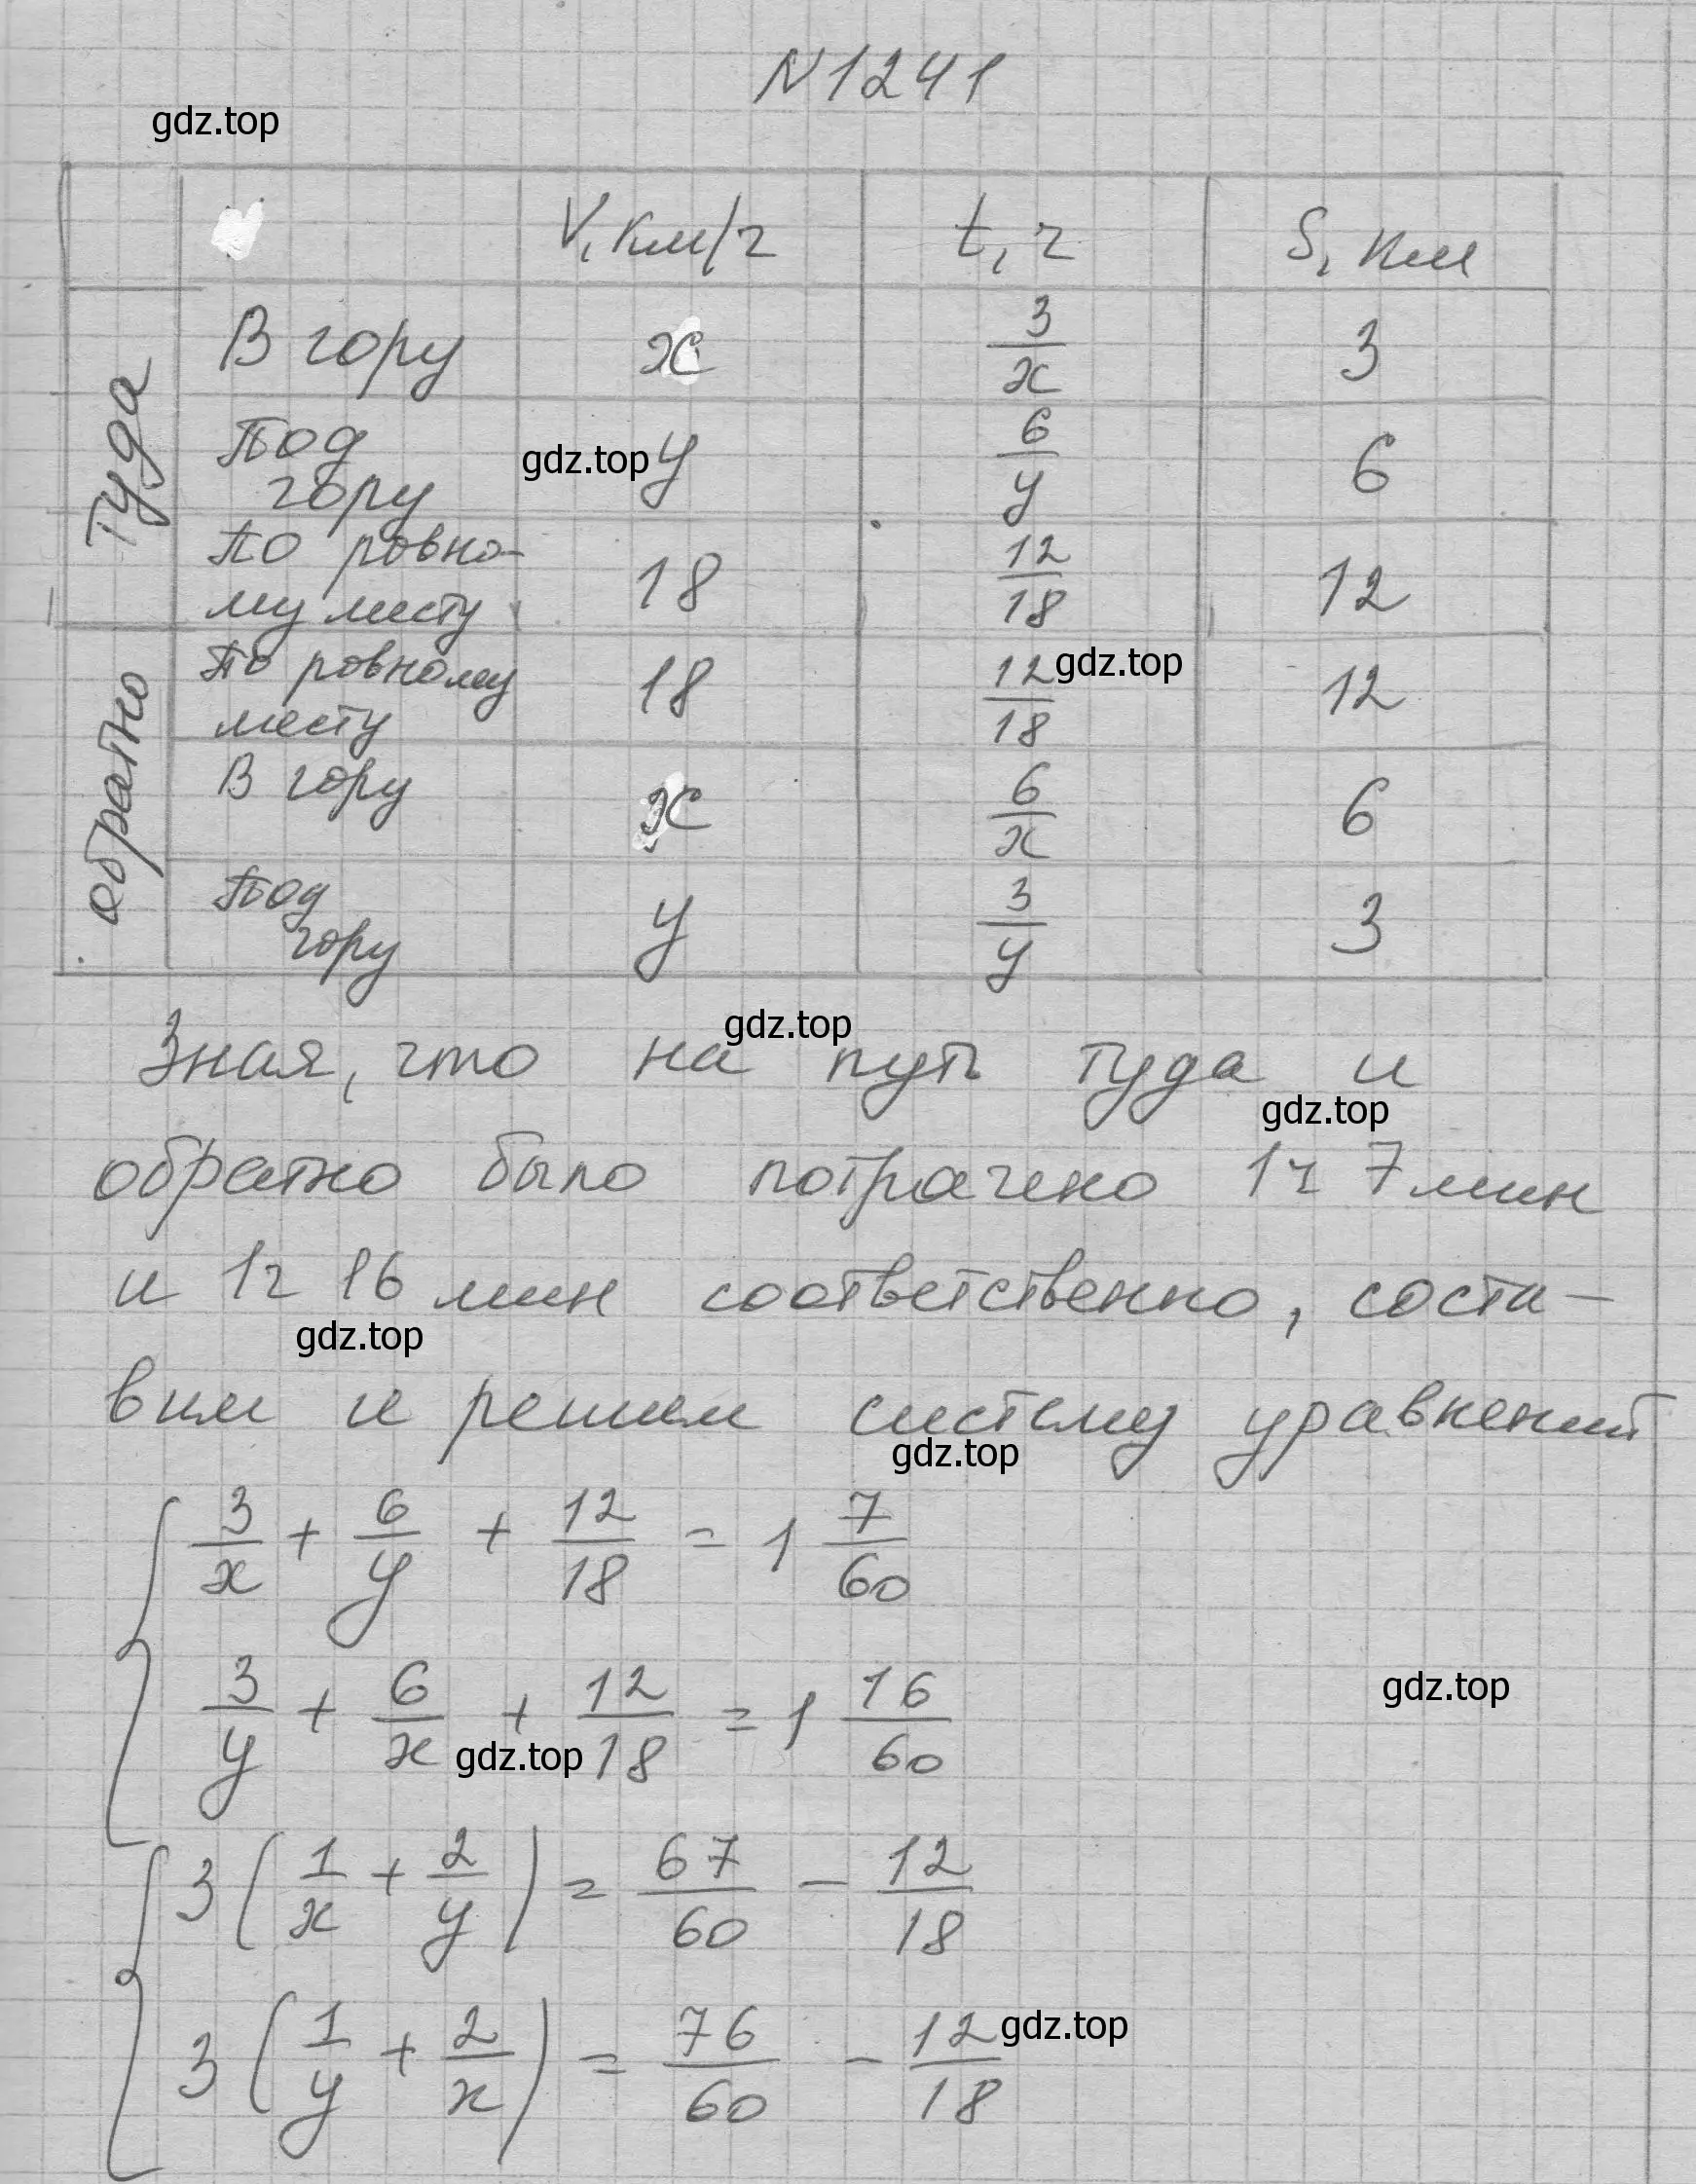 N 1241
gdz.top
V, км/ч t, ч S, км
Туда
В гору x 3/x 3
Под гору gdz.top y 6/y 6
По ровно-
му месту 18 12/18 12
обратно
По ровному
месту 18 12/18 gdz.top 12
В гору x 6/x 6
Под
гору y 3/y 3
gdz.top
Зная, что на путь туда и
gdz.top
обратно было потрачено 1ч 7 мин
и 1ч 16 мин соответственно, соста-
gdz.top
вим и решим систему уравнений
gdz.top
3/x + 6/y + 12/18 = 1 7/60
3/y + 6/x + 12/18 = 1 16/60
gdz.top
gdz.top
3(1/x + 2/y) = 67/60 - 12/18
3(1/y + 2/x) = 76/60 - 12/18
gdz.top